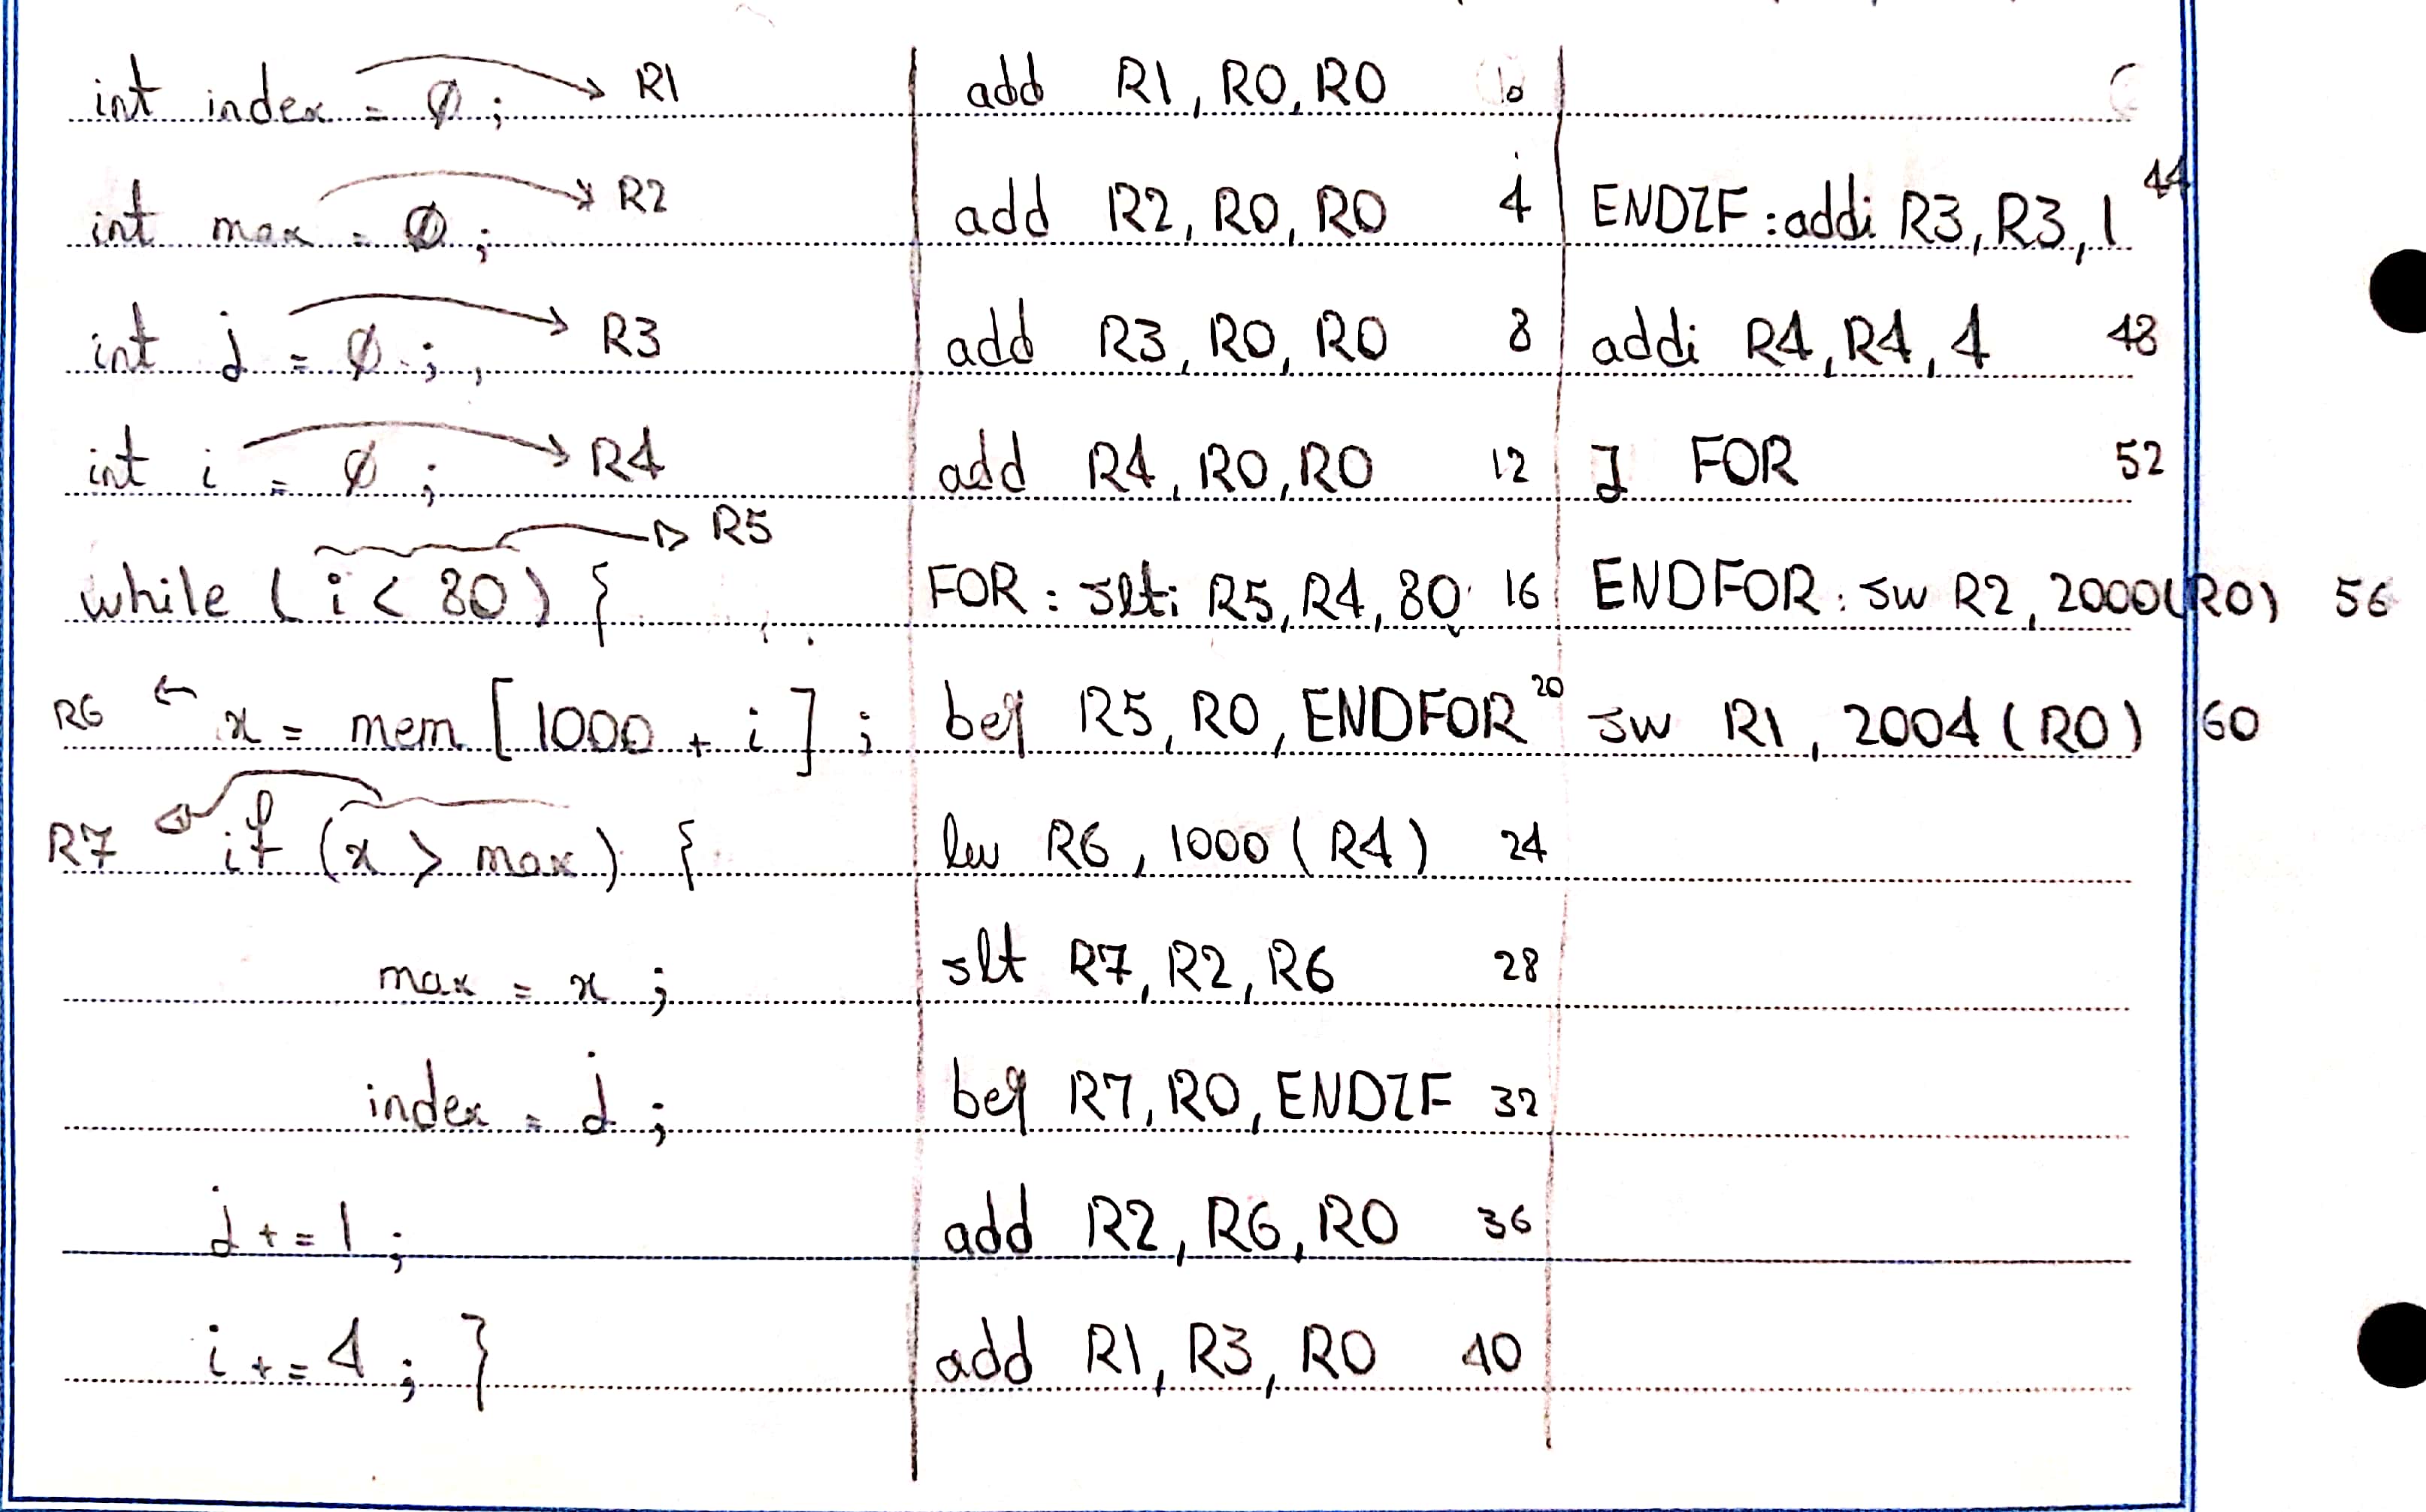 int index = 0; → R1
int max = 0; → R2
int j = 0; → R3
int i = 0; → R4
→ R5
while (i < 80) {
R6 ← x = mem [1000 + i];
R7 ← if (x > max) {
max = x;
index = j;
j += 1;
i += 4; }
add R1, R0, R0 0
add R2, R0, R0 4
add R3, R0, R0 8
add R4, R0, R0 12
FOR: slti R5, R4, 80 16
beq R5, R0, ENDFOR 20
lw R6, 1000(R4) 24
slt R7, R2, R6 28
beq R7, R0, ENDIF 32
add R2, R6, R0 36
add R1, R3, R0 40
ENDIF: addi R3, R3, 1 44
addi R4, R4, 4 48
J FOR 52
ENDFOR: sw R2, 2000(R0) 56
sw R1, 2004(R0) 60